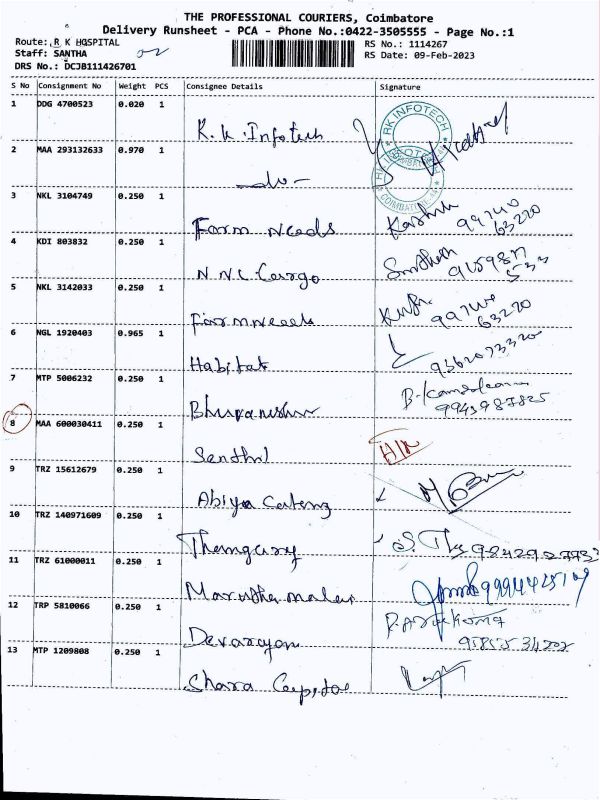 THE PROFESSIONAL COURIERS, Coimbatore
Delivery Runsheet - PCA - Phone No.:0422-3505555 - Page No.:1
Route: R K HOSPITAL
RS No.: 1114267
Staff: SANTHA
RS Date: 09-Feb-2023
DRS No.: DCJB111426701
S No Consignment No Weight PCS Consignee Details Signature
1 DDG 4700523 0.020 1
R.K. Infotech
RK INFOTECH
COIMBATORE
2 MAA 293132633 0.970 1
-do-
3 NKL 3104749 0.250 1
Farm Needs
99740 63220
4 KDI 803832 0.250 1
NNC Cargo
5 NKL 3142033 0.250 1
Farm Needs
63220
6 NGL 1920403 0.965 1
Habitat
9362073320
7 MTP 5006232 0.250 1
Bhuvaneshwr
9943987825
8 MAA 600030411 0.250 1
Senthil
9 TRZ 15612679 0.250 1
Abiya Caterng
10 TRZ 140971609 0.250 1
11 TRZ 61000011 0.250 1
Marudhamalai
12 TRP 5810066 0.250 1
Devarayan
13 MTP 1209808 0.250 1
Shara Capital